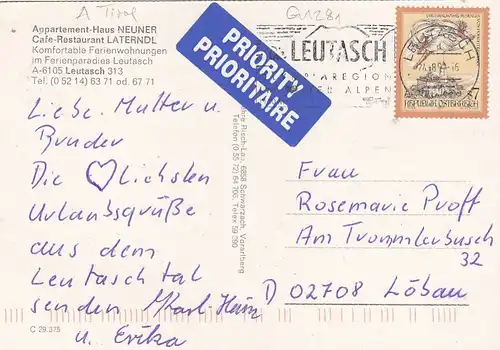 A Tirol
Q1281
Appartement-Haus NEUNER
Cafe-Restaurant LATERNDL
Komfortable Ferienwohnungen
im Ferienparadies Leutasch
A-6105 Leutasch 313
Tel. (0 52 14) 63 71 od. 67 71
PRIORITY
PRIORITAIRE
LEUTASCH
REGION
ALPEN
LEUTASCH
REPUBLIK ÖSTERREICH
Liebe Mutter u.
Bruder
Die ♡lichsten
Urlaubsgrüße
aus dem
Leutaschtal
senden Karl-Heinz
u. Erika
Risch-Lau, 6858 Schwarzach, Vorarlberg
Telefon (0 55 72) 64 766, Telex 59 290
Frau
Rosemarie Proft
Am Trommlerbusch
32
D 02708 Löbau
C 29.375